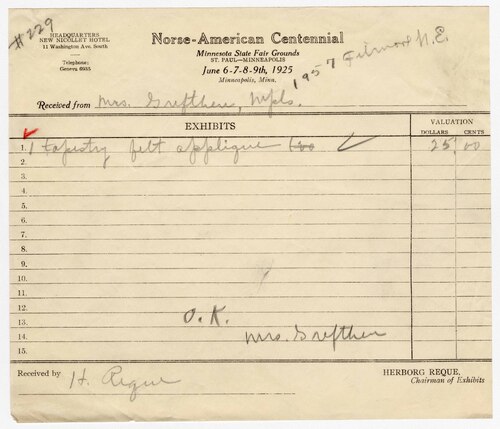 #229
HEADQUARTERS
NEW NICOLLET HOTEL
11 Washington Ave. South
Telephone:
Geneva 6935
Norse-American Centennial
Minnesota State Fair Grounds
ST. PAUL—MINNEAPOLIS
June 6-7-8-9th, 1925
Minneapolis, Minn.
1957 Filmore N.E.
Received from Mrs. Grefthen, Mpls.
EXHIBITS
VALUATION
DOLLARS CENTS
1. 1 tapestry felt applique 25 00
2.
3.
4.
5.
6.
7.
8.
9.
10.
11.
12.
13. O.K.
14. Mrs. Grefthen
15.
Received by H. Reque
HERBORG REQUE,
Chairman of Exhibits